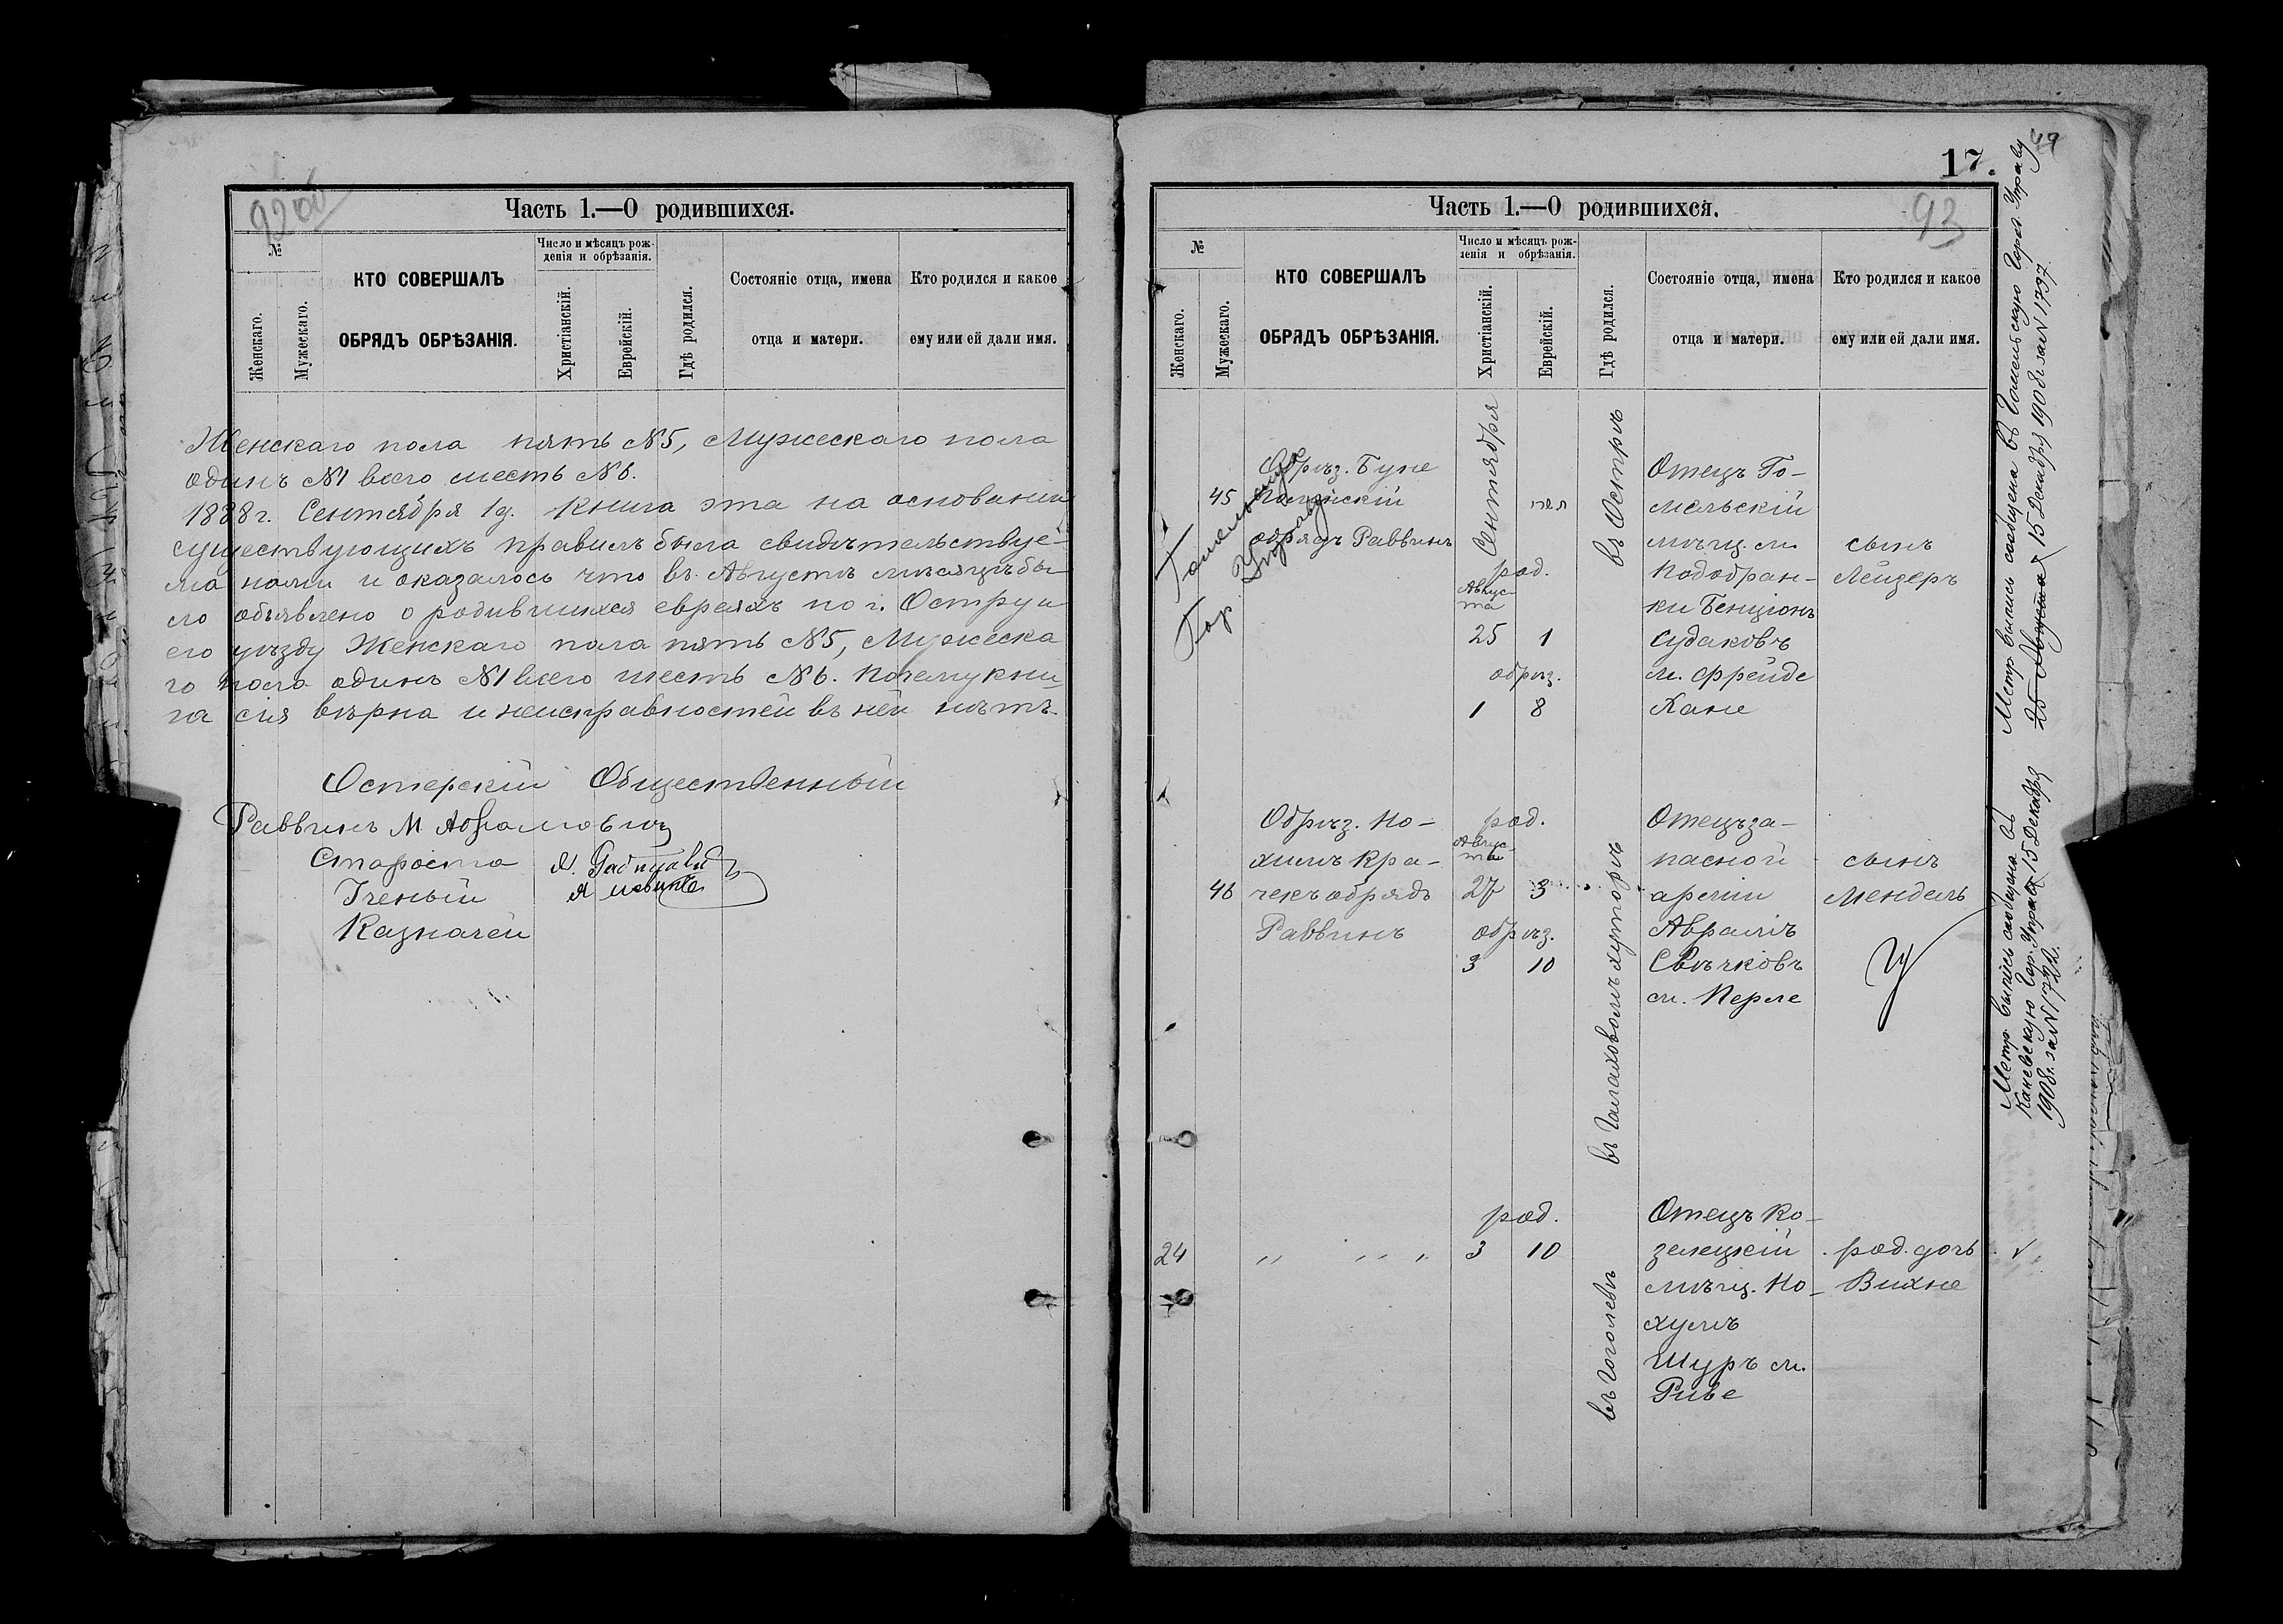 92об
Часть 1.—О родившихся.
№
Женскаго.
Мужескаго.
КТО СОВЕРШАЛЪ
ОБРЯДЪ ОБРѢЗАНІЯ.
Число и мѣсяцъ рож-
денія и обрѣзанія.
Христіанскій.
Еврейскій.
Гдѣ родился.
Состояніе отца, имена
отца и матери.
Кто родился и какое
ему или ей дали имя.
Женскаго пола пять №5, Мужескаго пола
одинъ №1 всего шесть №6.
1888 г. Сентября 1 д. Книга эта на основаніи
существующихъ правилъ была свидѣтельствуе-
ма нами и оказалось что въ Августѣ мѣсяцѣ бы-
ло объявлено о родившихся евреяхъ по г. Остру и
его уѣзду Женскаго пола пять №5, Мужеска
го пола одинъ №1 всего шесть №6. Почему кни-
га сія вѣрна и неисправностей въ ней нѣтъ
Остерскій Общественный
Раввинъ М Абрамовичъ
Староста
Ученый
Казначей
49
17.
Часть 1.—О родившихся.
93
№
Женскаго.
Мужескаго.
КТО СОВЕРШАЛЪ
ОБРЯДЪ ОБРѢЗАНІЯ.
Число и мѣсяцъ рож-
денія и обрѣзанія.
Христіанскій.
Еврейскій.
Гдѣ родился.
Состояніе отца, имена
отца и матери.
Кто родился и какое
ему или ей дали имя.
45
Обрѣз. Буне
обрядъ Раввинъ
Сентября
род.
Авгус-
та
25 1
обрѣз.
1 8
въ Острѣ
Отецъ Го-
мельскій
мѣщ. м.
Кододран-
ки Бенціонъ
Судаковъ
м. Фрейде
Хане
сынъ
Лейзеръ
Гомельскую
Гор. Управу
Метр. выпись сообщена въ Гомельскую Город. Управу
25 Августа 15 Декабря 1908 г. за № 1737.
46
Обрѣз. Но-
химъ Кра-
чекъ обрядъ
Раввинъ
род.
Авгус-
та
27 3
обрѣз.
3 10
хуторѣ
Отецъ за-
пасной
арміи
Авраамъ
Свѣчковъ
м. Перле
сынъ
Мендель
Метр. выпись сообщена въ
Каневскую Гор. Управу 15 Декабря
1908 г. за № 1722.
24
„ „ „ „
род.
3 10
въ Гоголевѣ
Отецъ Ко-
зелецкій
мѣщ. Но-
хумъ
Шуръ м.
Риве
род. дочь
Вихне